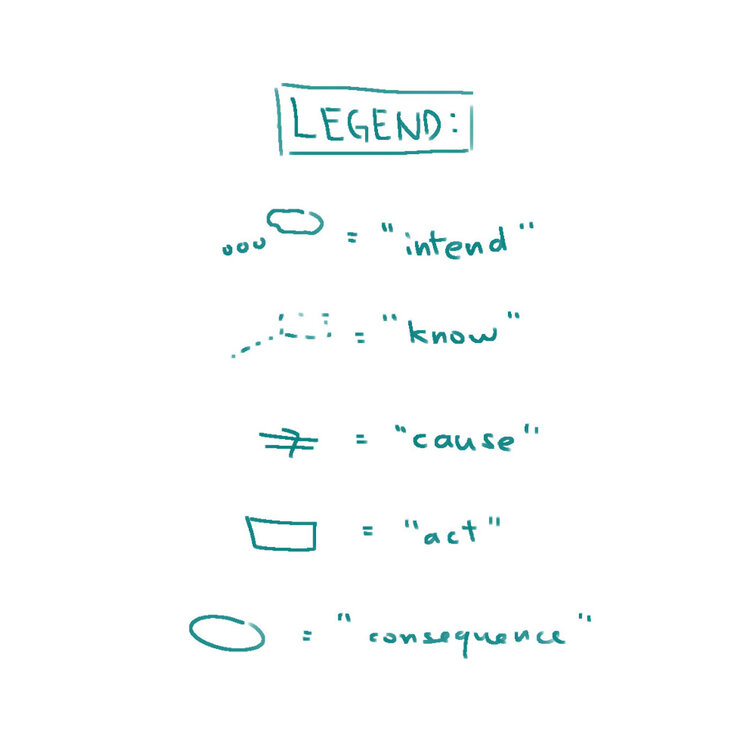 LEGEND:
= "intend"
= "know"
= "cause"
= "act"
= "consequence"